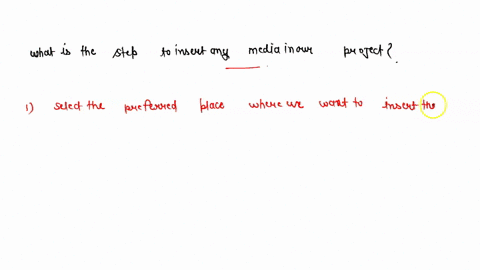 what is the step to insert any media in our project?
1) select the preferred place where we want to insert the